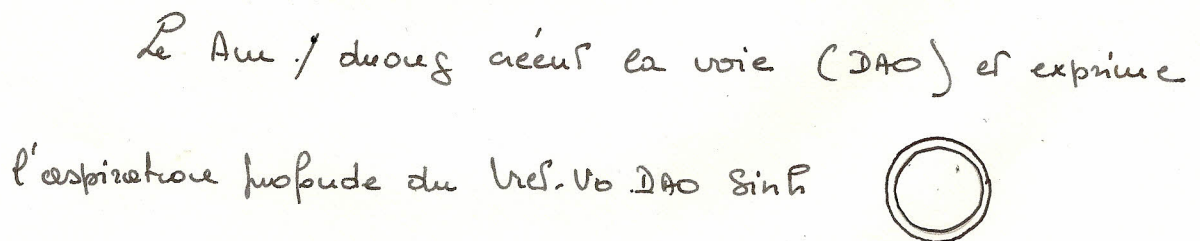 Le Am / duong créent la voie (DAO) et exprime
l'aspiration profonde du Viet.Vo.DAO Sinh